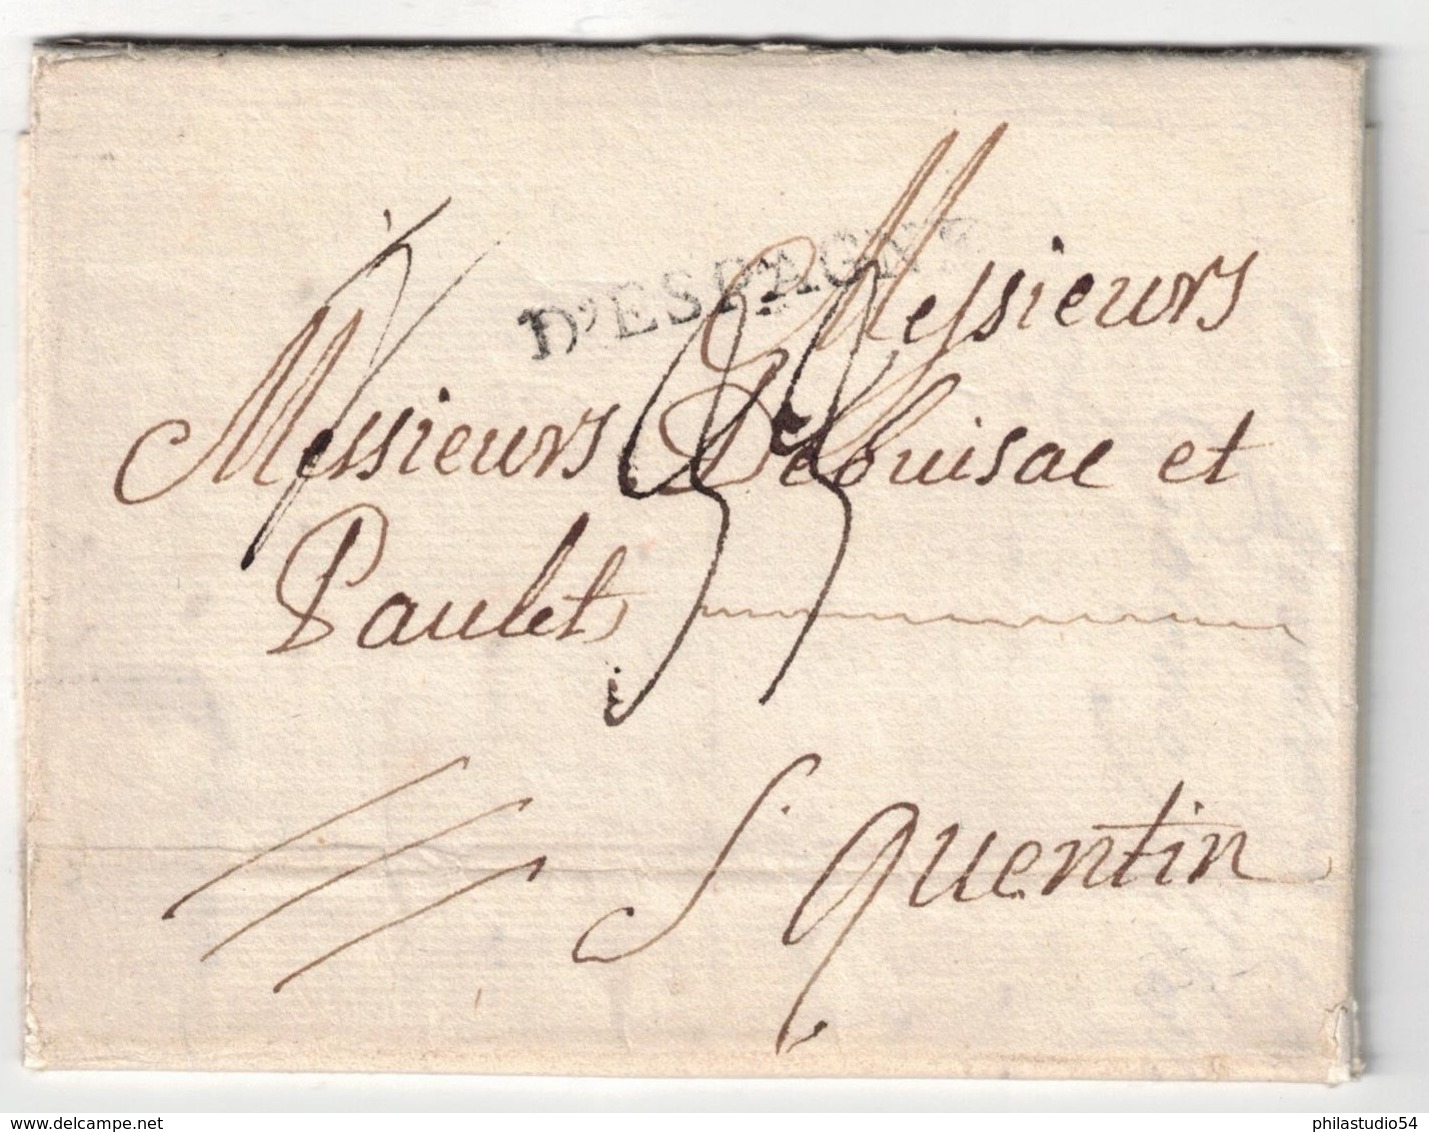 D'ESPAGNE
Messieurs
Messieurs Debuisac et
Paulet
33
S. quentin
philastudio54